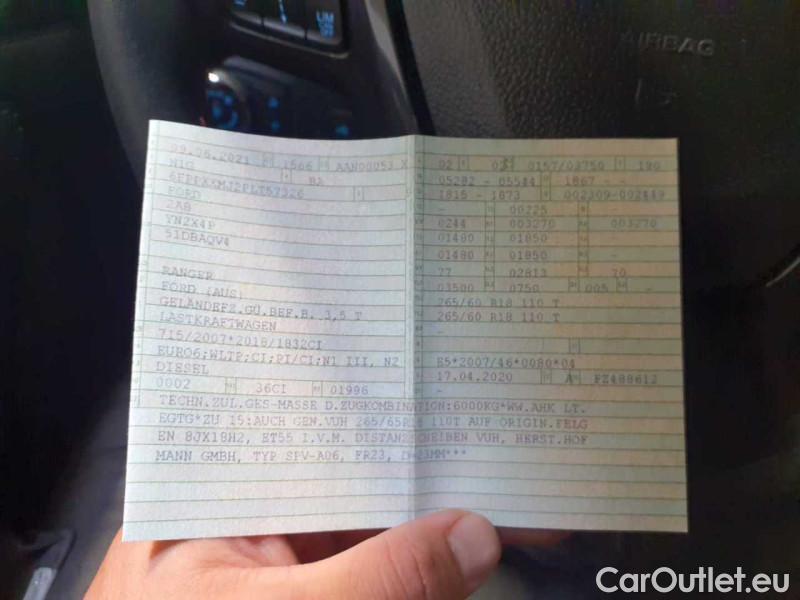 UM
AIRBAG
09.06.2021 1566 AAN00053 X
N1G BA
FORD
2AB
YN2X4P
51DBAQV4
RANGER
FORD (AUS)
GELÄNDEFZ.GÜ.BEF.B. 3,5 T
LASTKRAFTWAGEN
715/2007*2018/1832CI
EURO6;WLTP;CI;PI/CI;N1 III, N2
DIESEL
0002 36CI 01996
02 0157/03750 180
05282 - 05544 1867 - -
1815 - 1873 002309-002449
- 00225 -
0244 003270 003270
01480 01850 -
01480 01850 -
77 02813 70
03500 0750 005 -
265/60 R18 110 T
265/60 R18 110 T
-
-
E5*2007/46*0080*04
17.04.2020 A FZ488612
-
TECHN.ZUL.GES-MASSE D.ZUGKOMBINATION:6000KG*WW.AHK LT.
EGTG*ZU 15:AUCH GEN.VUH 265/65R18 110T AUF ORIGIN.FELG
EN 8JX18H2, ET55 I.V.M. DISTANZSCHEIBEN VUH, HERST.HOF
MANN GMBH, TYP SPV-A06, FR23, D=23MM***
CarOutlet.eu